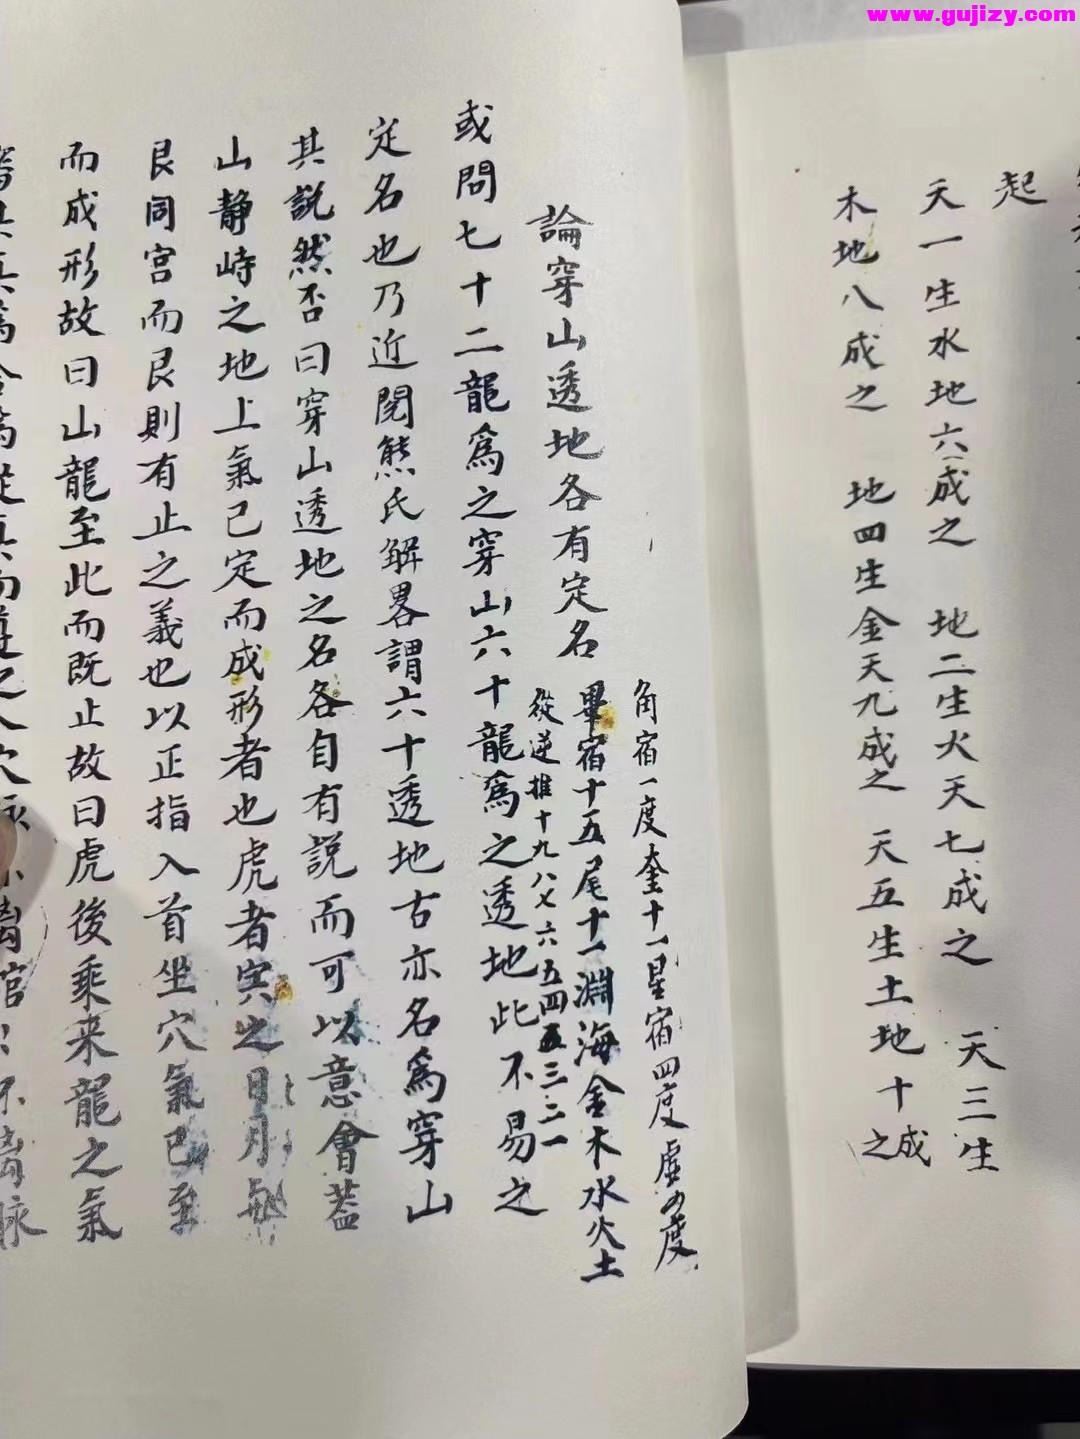 www.gujizy.com
起
天一生水地六成之 地二生火天七成之 天三生
木地八成之 地四生金天九成之 天五生土地十成之
角宿一度奎十一星宿四度虛四度
畢宿十五尾十一淵海金木水火土
從逆推十九八七六五四五三二一
論穿山透地各有定名
或問七十二龍爲之穿山六十龍爲之透地此不易之
定名也乃近閱熊氏解畧謂六十透地古亦名爲穿山
其説然否曰穿山透地之名各自有説而可以意會蓋
山静峙之地上氣已定而成形者也虎者寅之
艮同宮而艮則有止之義也以正指入首坐穴氣已至
而成形故曰山龍至此而既止故曰虎後乘来龍之氣